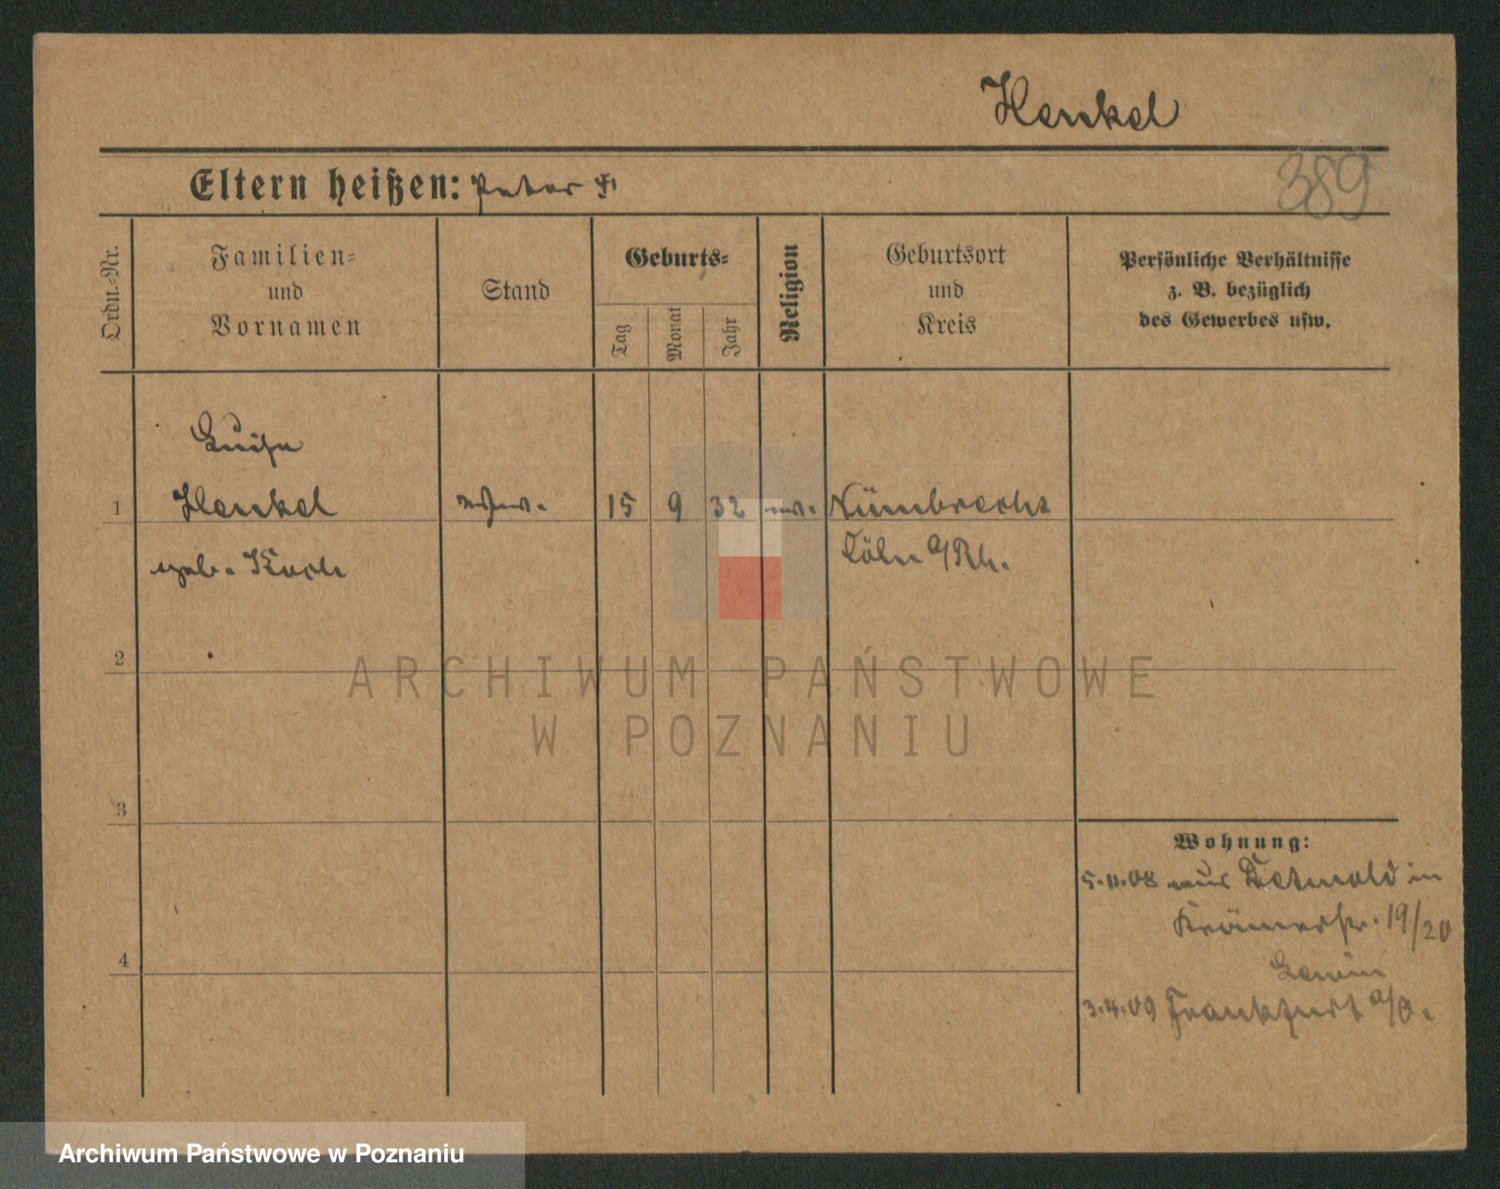 Henkel
389
Eltern heißen: Peter †
Ordn.-Nr.
Familien-
und
Vornamen
Stand
Geburts-
Tag
Monat
Jahr
Religion
Geburtsort
und
Kreis
Persönliche Verhältnisse
z. B. bezüglich
des Gewerbes usw.
Luise
1 Henkel 15 9 32 Nümbrecht
geb. Koch Cöln a/Rh.
2
ARCHIWUM PAŃSTWOWE
W POZNANIU
3
Wohnung:
5.11.08 aus Detmold in
Krämerstr. 19/20
4
Lewin
3.4.09 Frankfurt a/O.
Archiwum Państwowe w Poznaniu